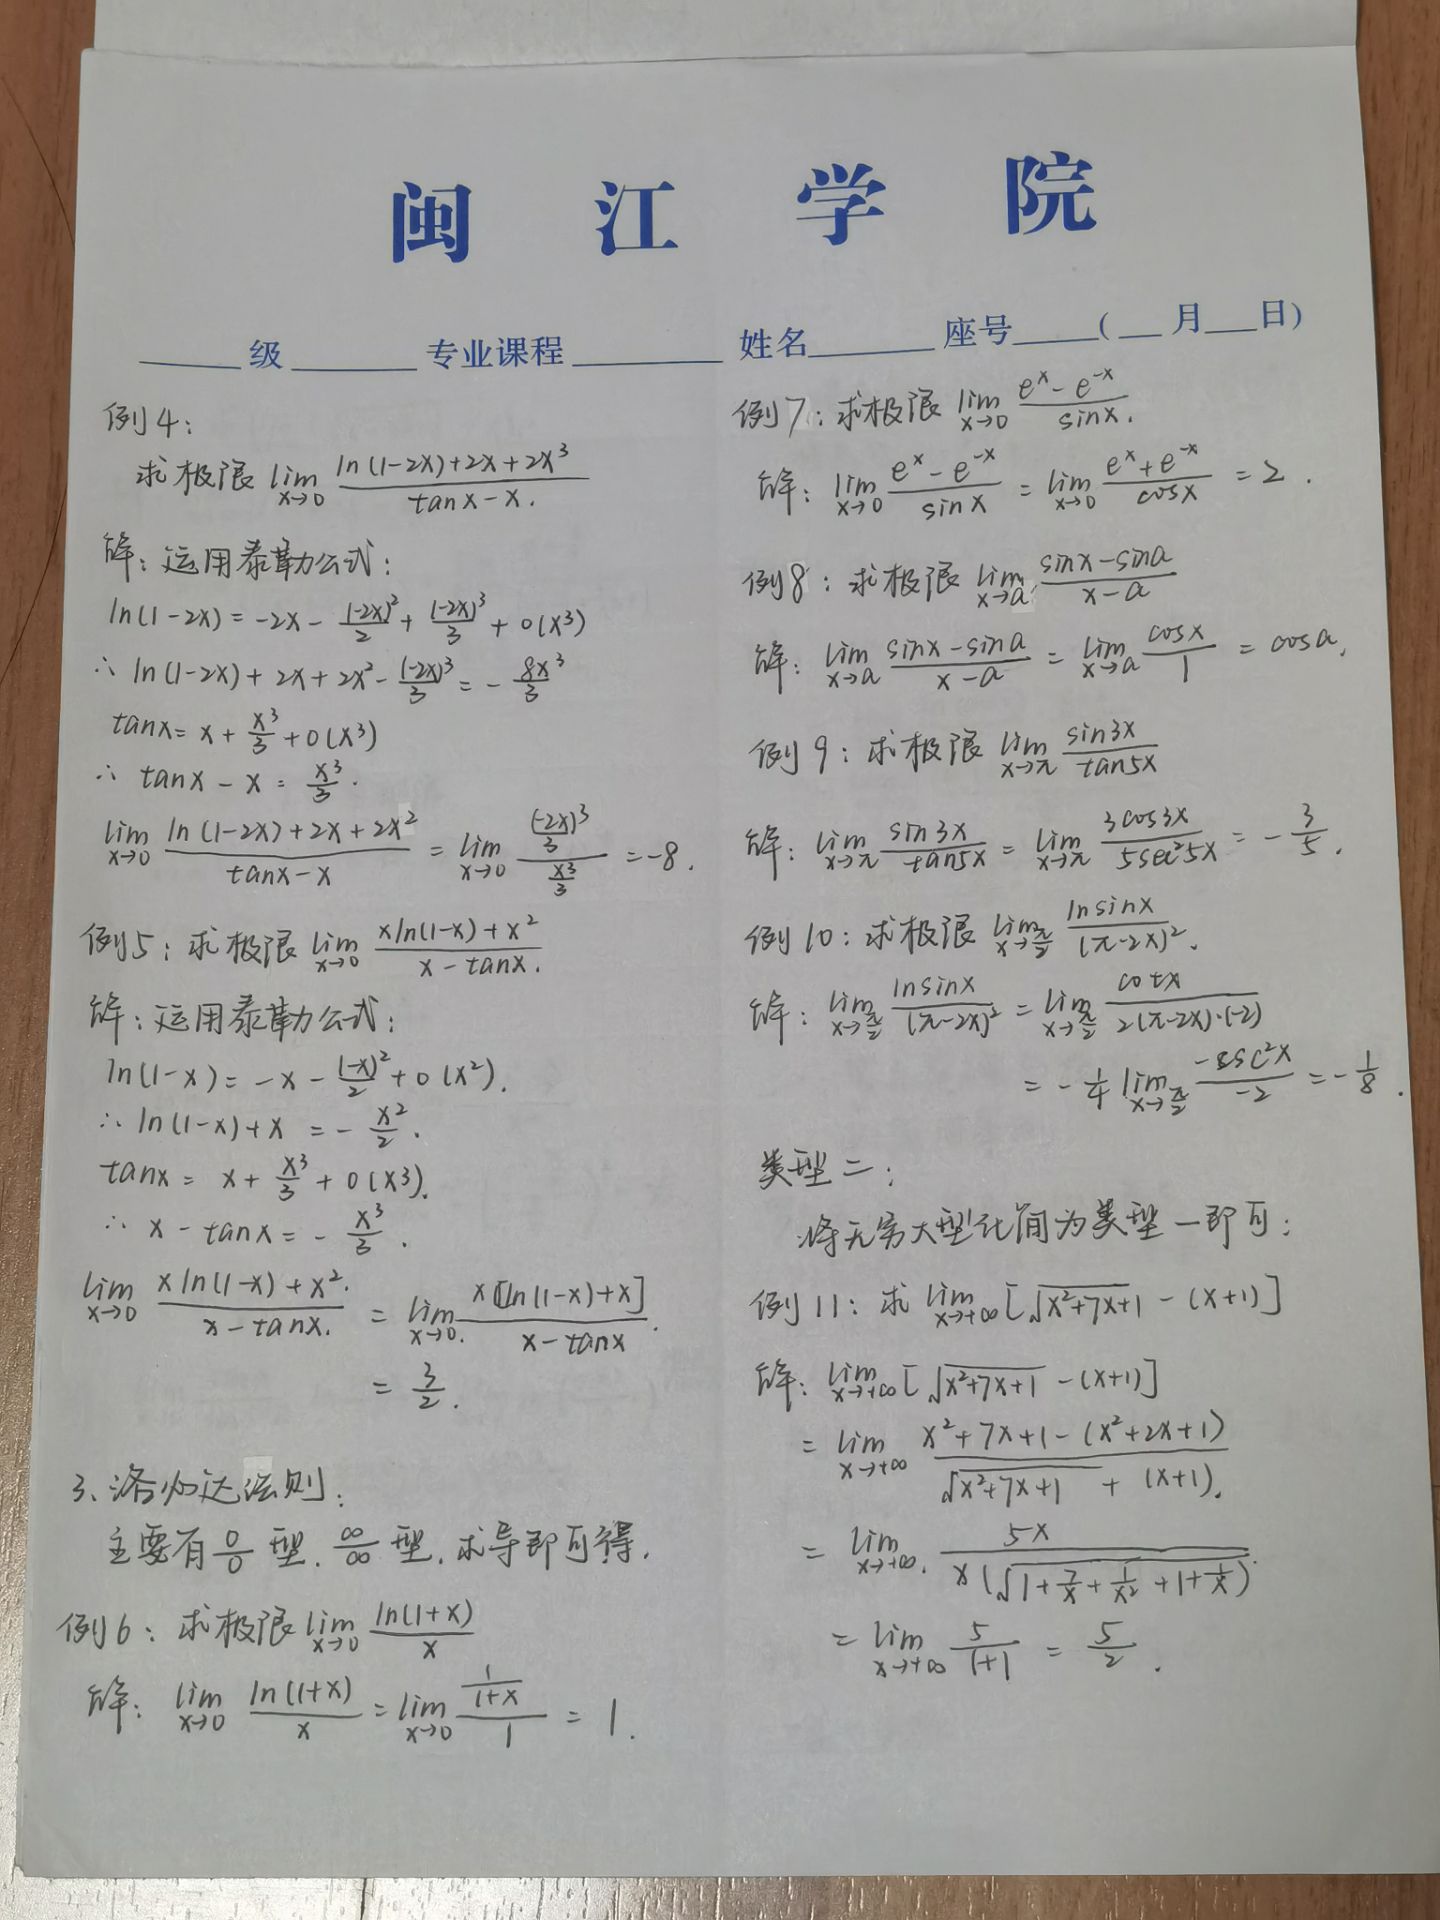 闽江学院
____级______专业课程________姓名______座号____(__月__日)
例4:
求极限 lim_{x→0} (ln(1-2x)+2x+2x³)/(tanx-x).
解:运用泰勒公式:
ln(1-2x)=-2x-(-2x)²/2+(-2x)³/3+o(x³)
∴ ln(1-2x)+2x+2x²-(-2x)³/3=-8x³/3
tanx=x+x³/3+o(x³)
∴ tanx-x=x³/3.
lim_{x→0} (ln(1-2x)+2x+2x²)/(tanx-x)=lim_{x→0} ((-2x)³/3)/(x³/3)=-8.
例5:求极限 lim_{x→0} (xln(1-x)+x²)/(x-tanx).
解:运用泰勒公式:
ln(1-x)=-x-(-x)²/2+o(x²).
∴ ln(1-x)+x=-x²/2.
tanx=x+x³/3+o(x³).
∴ x-tanx=-x³/3.
lim_{x→0} (xln(1-x)+x²)/(x-tanx)=lim_{x→0} x[ln(1-x)+x]/(x-tanx).
=3/2.
3、洛必达法则:
主要有0/0型、∞/∞型,求导即可得.
例6:求极限 lim_{x→0} ln(1+x)/x
解:lim_{x→0} ln(1+x)/x=lim_{x→0} (1/(1+x))/1=1.
例7:求极限 lim_{x→0} (e^x-e^{-x})/sinx.
解:lim_{x→0} (e^x-e^{-x})/sinx=lim_{x→0} (e^x+e^{-x})/cosx=2.
例8:求极限 lim_{x→a} (sinx-sina)/(x-a)
解:lim_{x→a} (sinx-sina)/(x-a)=lim_{x→a} cosx/1=cosa.
例9:求极限 lim_{x→π} sin3x/tan5x
解:lim_{x→π} sin3x/tan5x=lim_{x→π} 3cos3x/5sec²5x=-3/5.
例10:求极限 lim_{x→π/2} lnsinx/(π-2x)².
解:lim_{x→π/2} lnsinx/(π-2x)²=lim_{x→π/2} cotx/(2(π-2x)·(-2))
=-1/4 lim_{x→π/2} (-csc²x)/(-2)=-1/8.
类型二:
将无穷大型化简为类型一即可:
例11:求 lim_{x→+∞}[√(x²+7x+1)-(x+1)]
解:lim_{x→+∞}[√(x²+7x+1)-(x+1)]
=lim_{x→+∞} (x²+7x+1-(x²+2x+1))/(√(x²+7x+1)+(x+1)).
=lim_{x→+∞} 5x/(x(√(1+7/x+1/x²)+1+1/x)).
=lim_{x→+∞} 5/(1+1)=5/2.